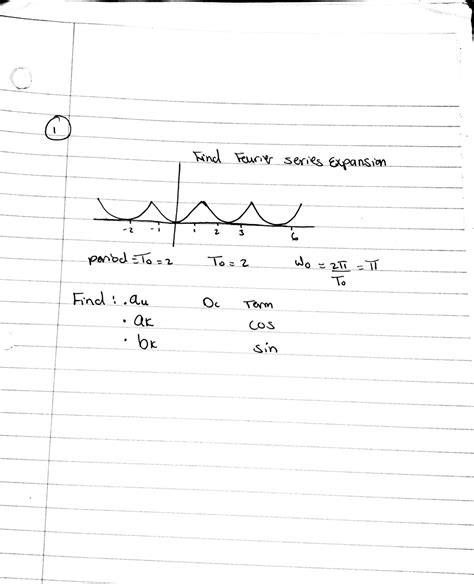 1
Find Fourier series Expansion
-2 -1 1 2 3 6
period = To = 2 To = 2 Wo = 2π/To = π
Find : . au Dc Term
• ak cos
• bk sin